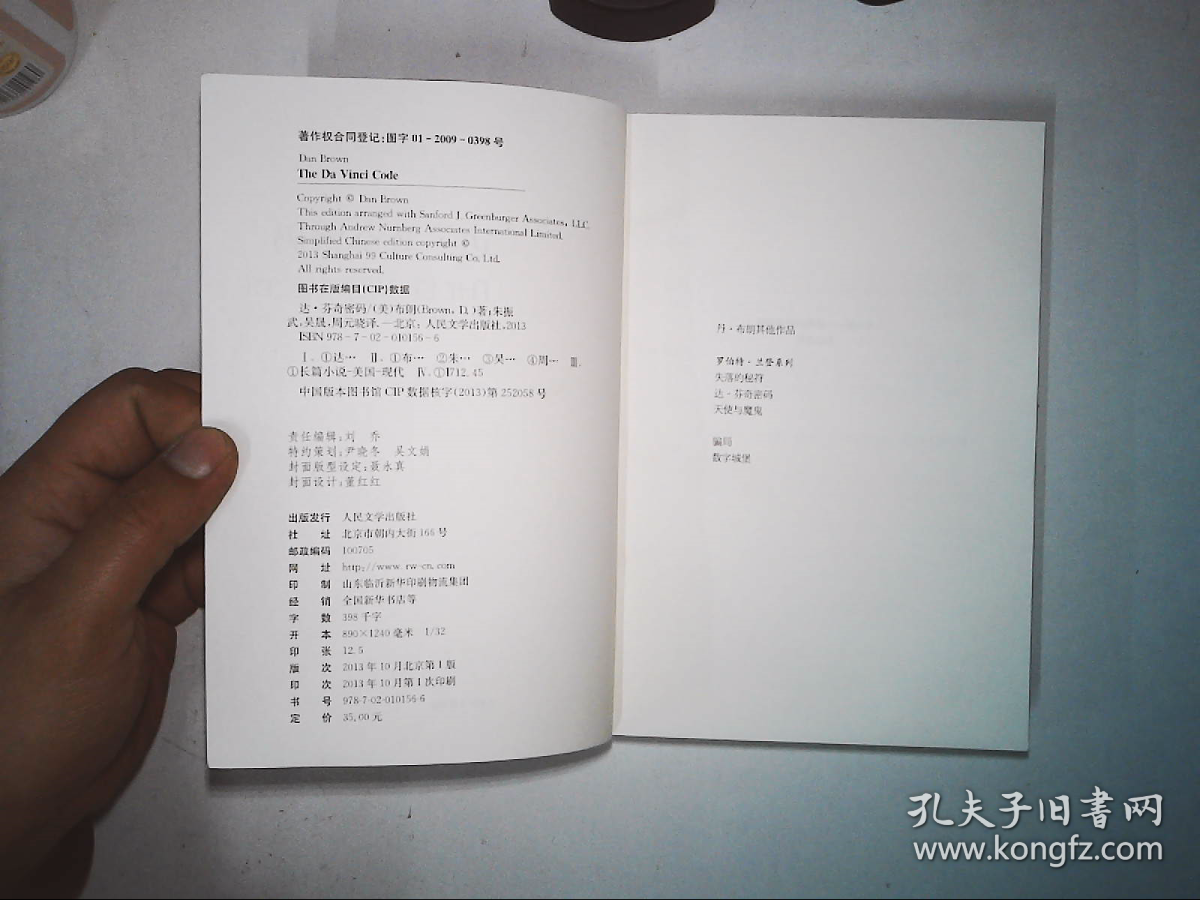 著作权合同登记:图字 01-2009-0398 号
Dan Brown
The Da Vinci Code
Copyright © Dan Brown
This edition arranged with Sanford J. Greenburger Associates, LLC.
Through Andrew Nurnberg Associates International Limited.
Simplified Chinese edition copyright ©
2013 Shanghai 99 Culture Consulting Co. Ltd.
All rights reserved.
图书在版编目(CIP)数据
达·芬奇密码/(美)布朗(Brown, D.)著;朱振
武,吴晟,周元晓译.—北京:人民文学出版社,2013
ISBN 978-7-02-010156-6
Ⅰ.①达… Ⅱ.①布… ②朱… ③吴… ④周… Ⅲ.
①长篇小说-美国-现代 Ⅳ.①I712.45
中国版本图书馆 CIP 数据核字(2013)第 252058 号
责任编辑:刘 乔
特约策划:尹晓冬 吴文娟
封面版型设定:聂永真
封面设计:董红红
出版发行 人民文学出版社
社 址 北京市朝内大街 166 号
邮政编码 100705
网 址 http://www.rw-cn.com
印 制 山东临沂新华印刷物流集团
经 销 全国新华书店等
字 数 398 千字
开 本 890×1240 毫米 1/32
印 张 12.5
版 次 2013 年 10 月北京第 1 版
印 次 2013 年 10 月第 1 次印刷
书 号 978-7-02-010156-6
定 价 35.00 元
丹·布朗其他作品
罗伯特·兰登系列
失落的秘符
达·芬奇密码
天使与魔鬼
骗局
数字城堡
孔夫子旧书网
www.kongfz.com